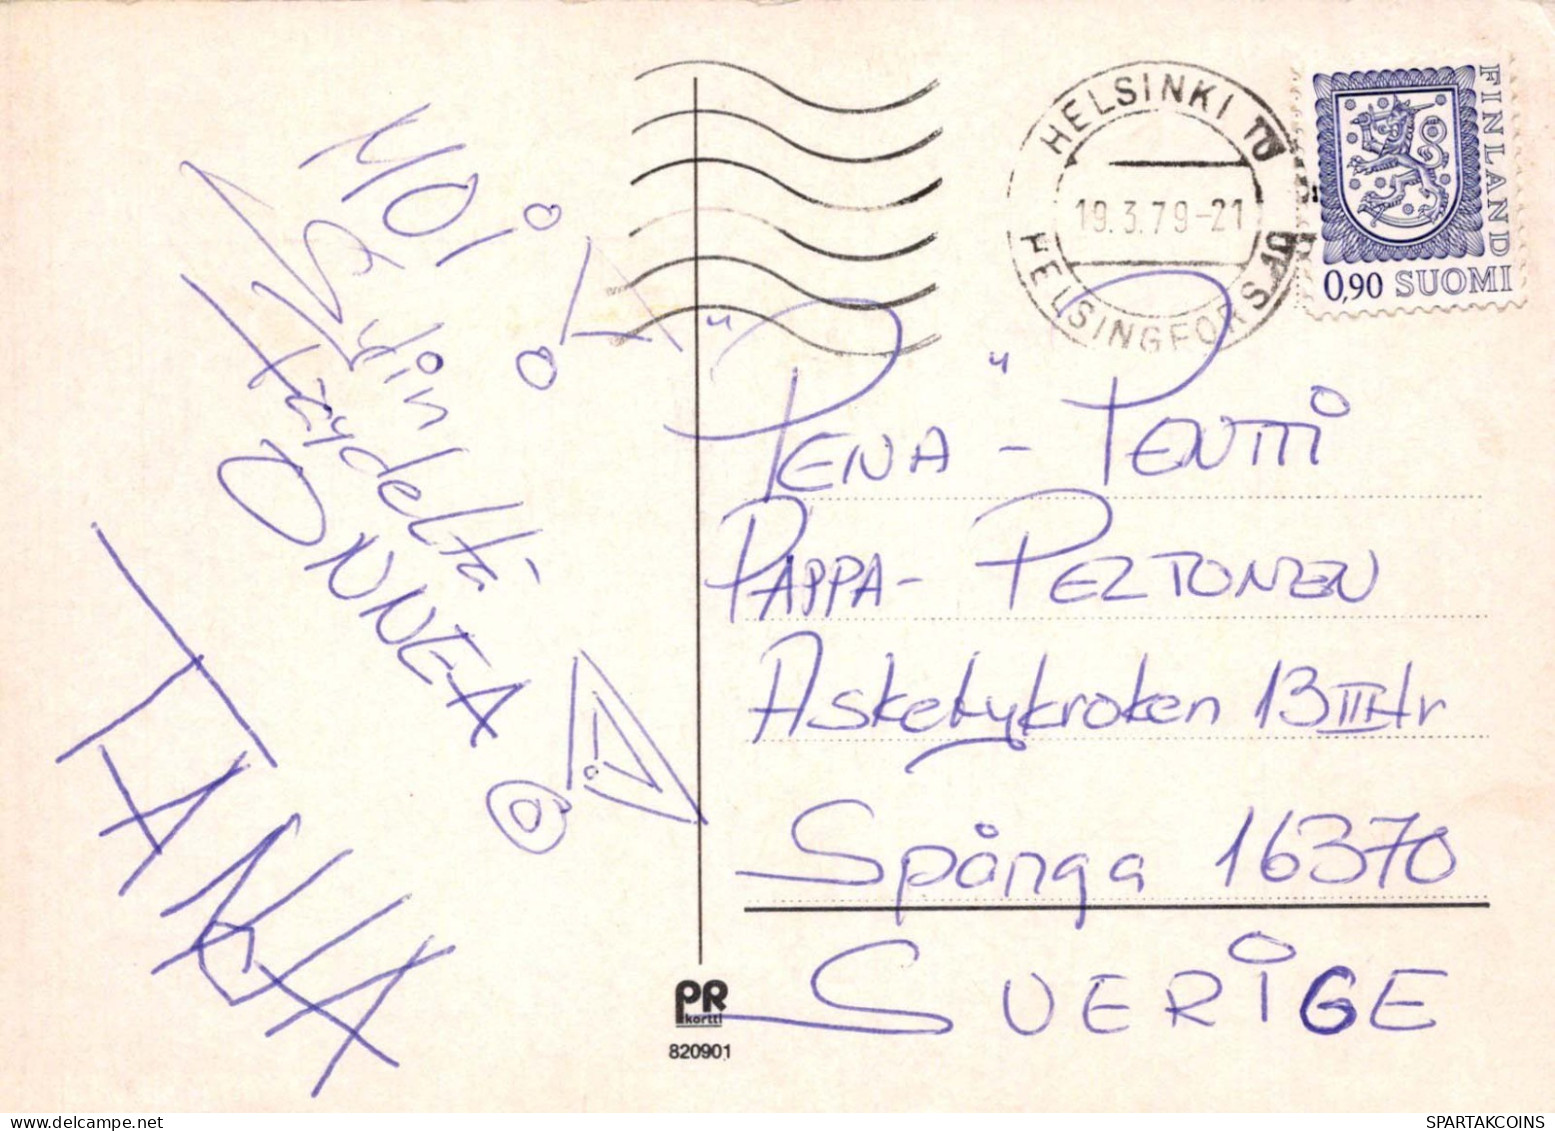 MOI
Sydämin
täydeltä
ONNEA
TANJA
HELSINKI TO
19.3.79-21
HELSINGFORS
FINLAND
0,90 SUOMI
"PENA" - PENTTI
PAPPA - PELTONEN
Askebykroken 13 III tr
Spånga 16370
SVERIGE
PR
kortti
820901
SPARTAKCOINS